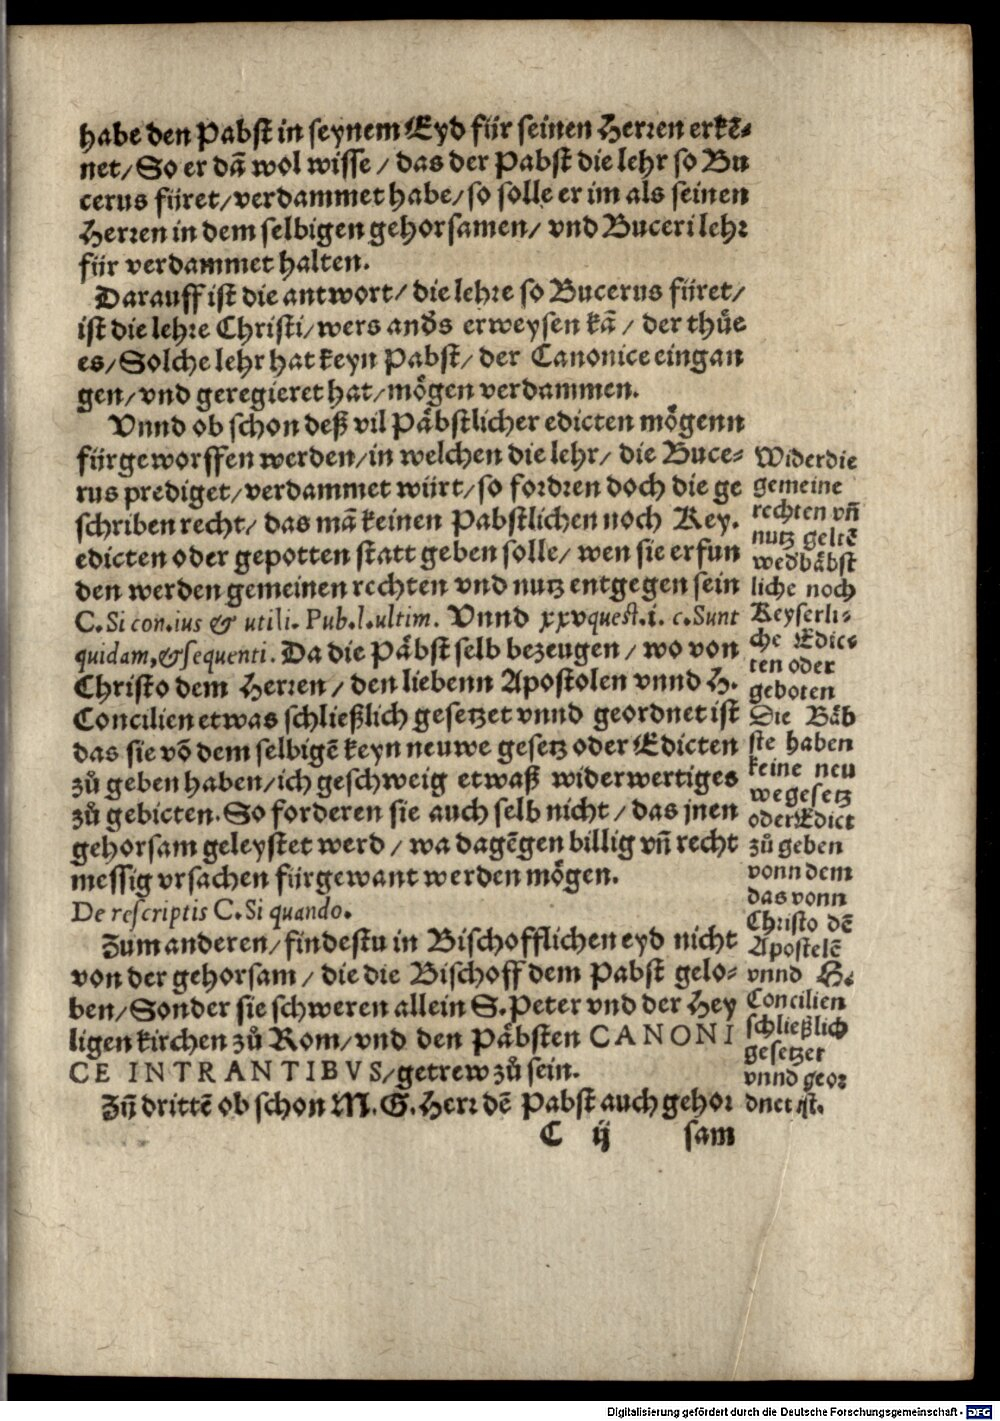 habe den Pabst in seynem Eyd für seinen Herren erkē-
net/ So er dā wol wisse / das der Pabst die lehr so Bu
cerus füret/ verdammet habe/ so solle er im als seinen
Herren in dem selbigen gehorsamen/ vnd Buceri lehr
für verdammet halten.
Darauff ist die antwort/ die lehre so Bucerus füret/
ist die lehre Christi/ wers anđs erweysen kā / der thüe
es/ Solche lehr hat keyn Pabst/ der Canonice eingan
gen/ vnd geregieret hat/ mögen verdammen.
Vnnd ob schon deß vil Päbstlicher edicten mögenn
fürgeworffen werden/ in welchen die lehr/ die Buce-
rus prediget/ verdammet würt/ so fordren doch die ge
schriben recht/ das mā keinen Pabstlichen noch Key.
edicten oder gepotten statt geben solle/ wen sie erfun
den werden gemeinen rechten vnd nutz entgegen sein
C. Si con. ius & utili. Pub. l. ultim. Vnnd xxv quest. i. c. Sunt
quidam, & sequenti. Da die Päbst selb bezeugen / wo von
Christo dem Herren / den liebenn Apostolen vnnd H.
Concilien etwas schließlich gesetzet vnnd geordnet ist
das sie vō dem selbigē keyn neuwe gesetz oder Edicten
zů geben haben/ ich geschweig etwaß widerwertiges
zů gebieten. So forderen sie auch selb nicht / das jnen
gehorsam geleystet werd / wa dagēgen billig vn̄ recht
messig vrsachen fürgewant werden mögen.
De rescriptis C. Si quando.
Zum anderen/ findestu in Bischofflichen eyd nicht
von der gehorsam / die die Bischoff dem Pabst gelo-
ben/ Sonder sie schweren allein S. Peter vnd der Hey
ligen kirchen zů Rom/ vnd den Päbsten CANONI
CE INTRANTIBVS/ getrew zů sein.
Zū drittē ob schon M. G. Herr dē Pabst auch gehor
C ij sam
Wider die
gemeine
rechten vn̄
nutz geltē
wed bäbst
liche noch
Keyserli-
che Edic-
ten oder
geboten
Die Bäb
ste haben
keine neu
we gesetz
oder Edict
zů geben
vonn dem
das vonn
Christo dē
Apostelē
vnnd H.
Concilien
schließlich
gesetzet
vnnd geor
dnet ist.
Digitalisierung gefördert durch die Deutsche Forschungsgemeinschaft - DFG